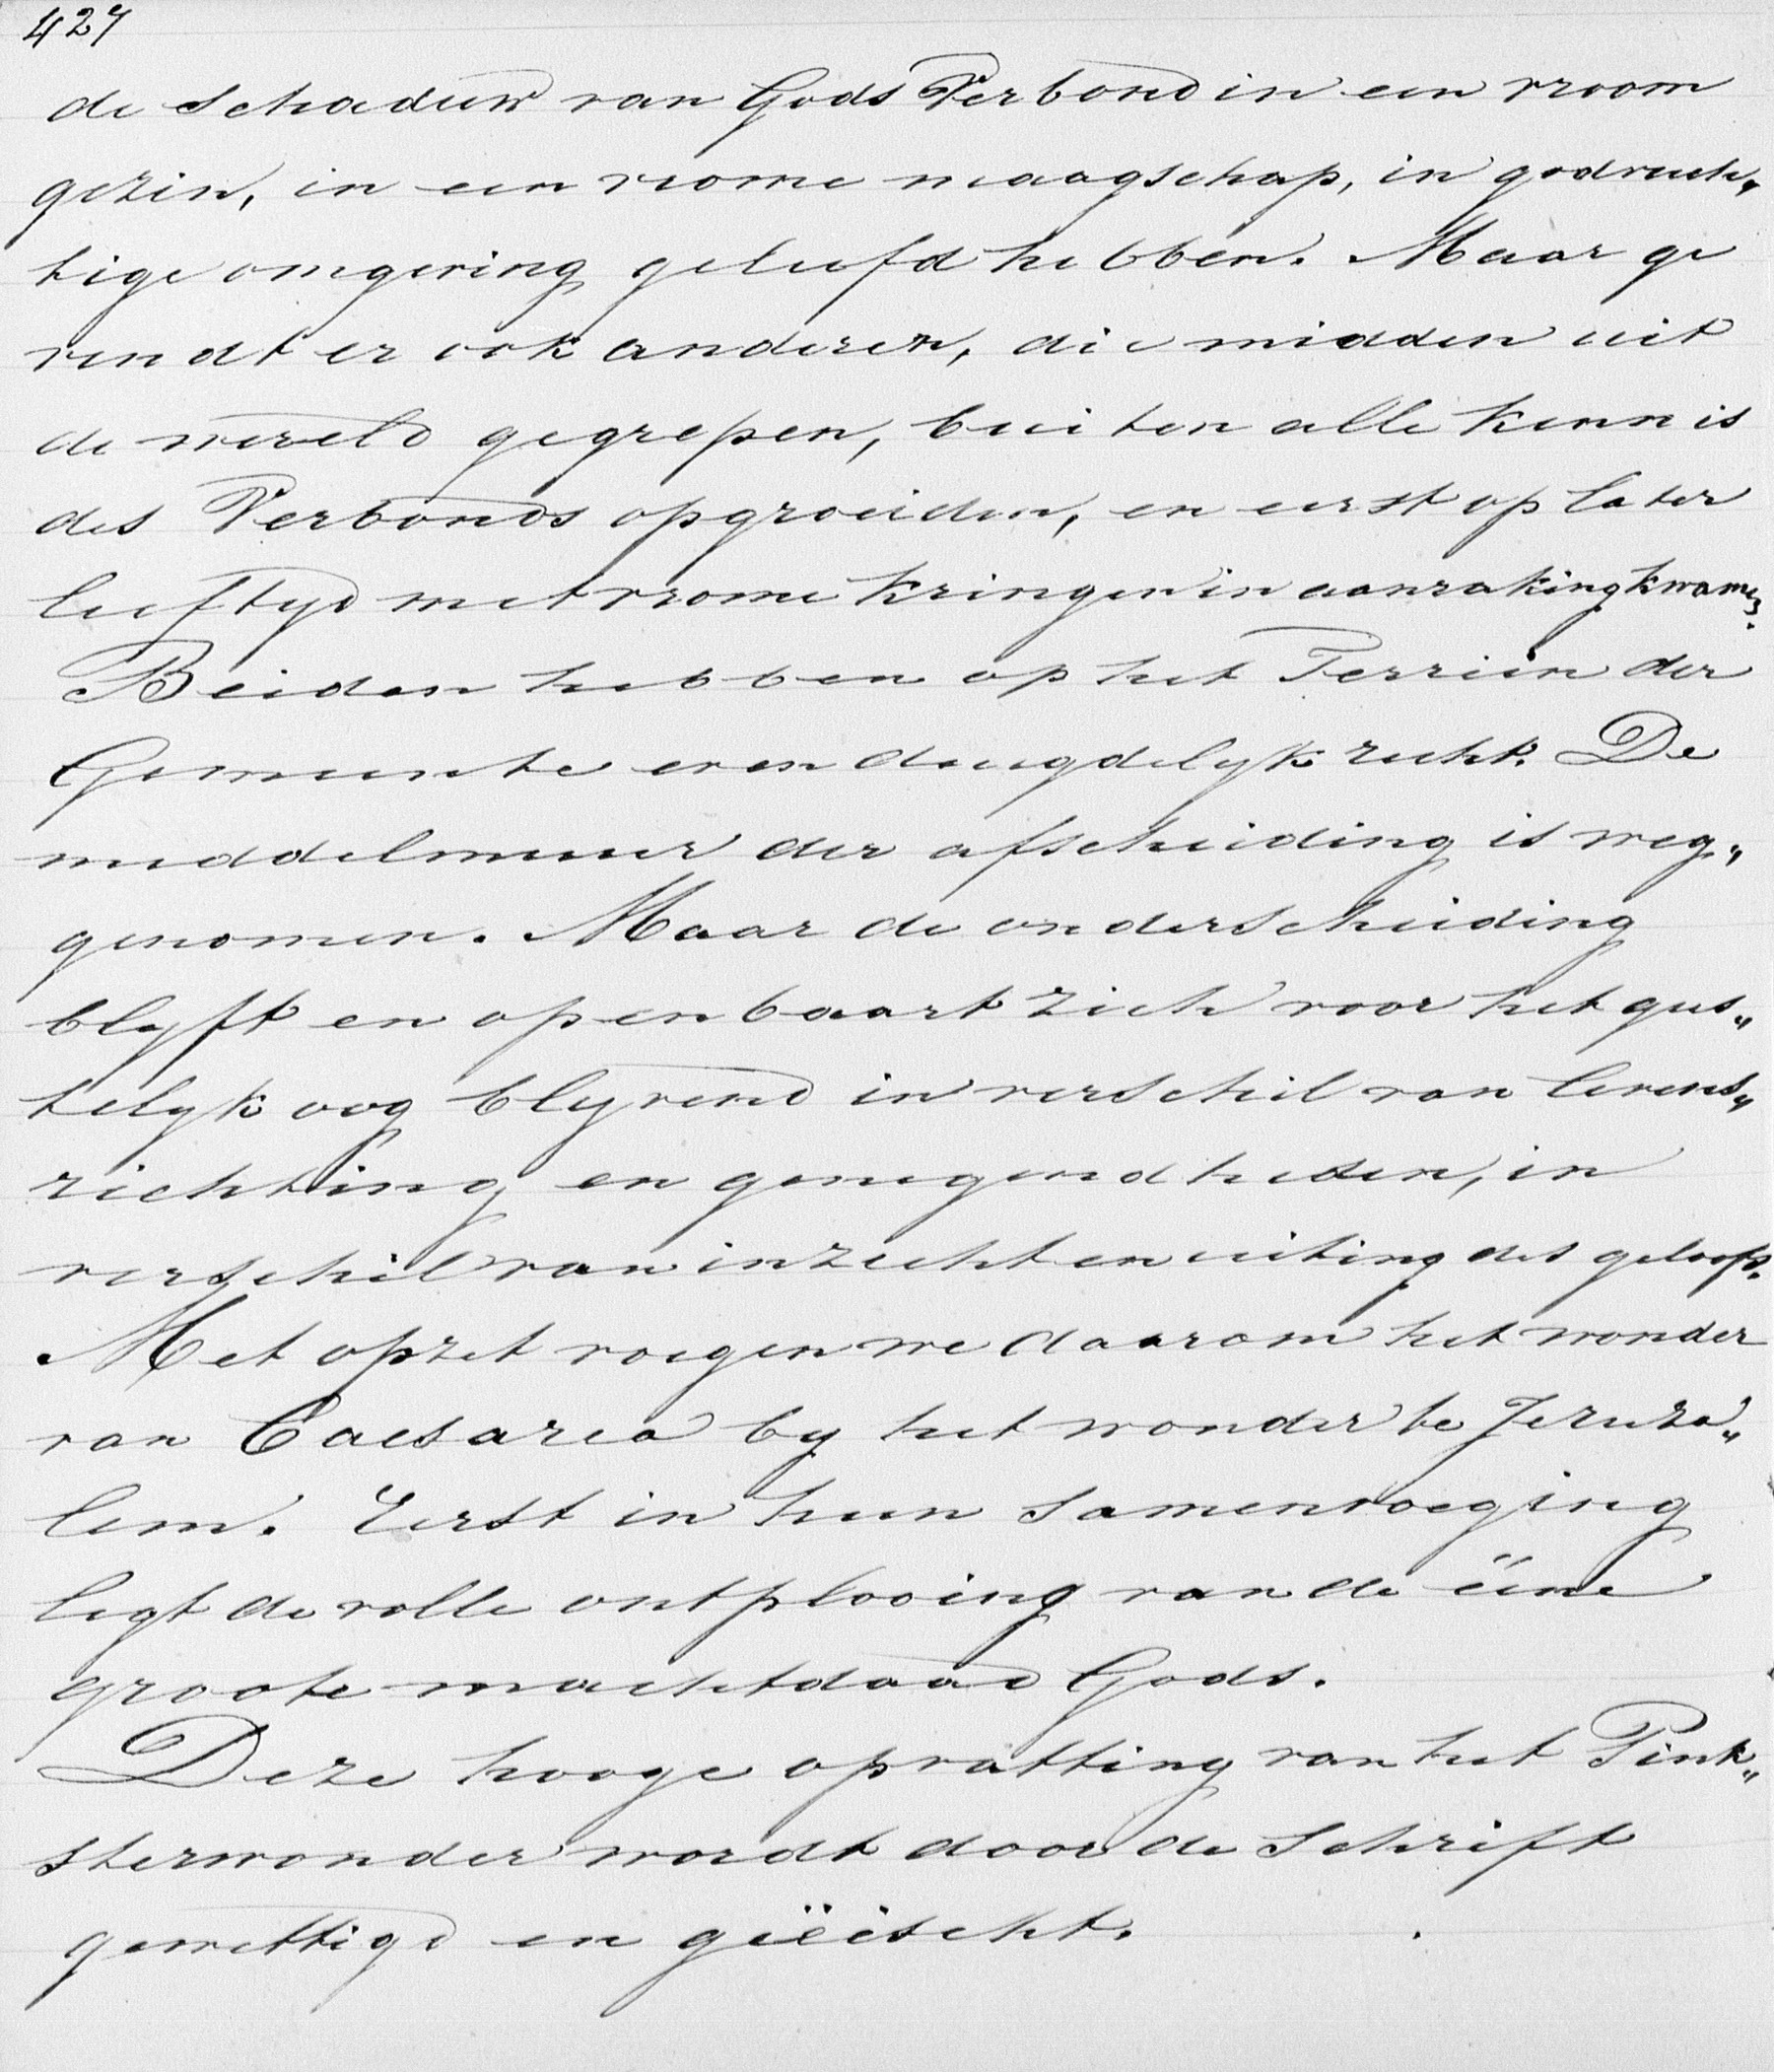 427
de schaduw van Gods Verbond in een vroom
gezin, in een vrome maagschap, in godvruch„
tige omgeving geleefd hebben. Maar ge
vindt er ook anderen, die midden uit
de wereld gegrepen, buiten alle kennis
des Verbonds opgroeiden, en eerst op later
leeftyd met vrome kringen in aanraking kwamen.
Beiden hebben op het Terrein der
Gemeente even deugdelyk recht. De
middelmuur der afscheiding is weg„
genomen. Maar de onderscheiding
blyft en openbaart zich voor het gees„
telyk oog blyvend in verschil van levens„
richting en genegendheden, in
verschil van inzicht en uiting des geloofs.
Met opzet voegen we daarom het wonder
van Caesarea by het wonder te Jeruza„
lem. Eerst in hun samenvoeging
ligt de volle ontplooing van de ééne
groote machtdaad Gods.
Deze hooge opvatting van het Pink„
sterwonder wordt door de Schrift
gewettigd en geëischt.